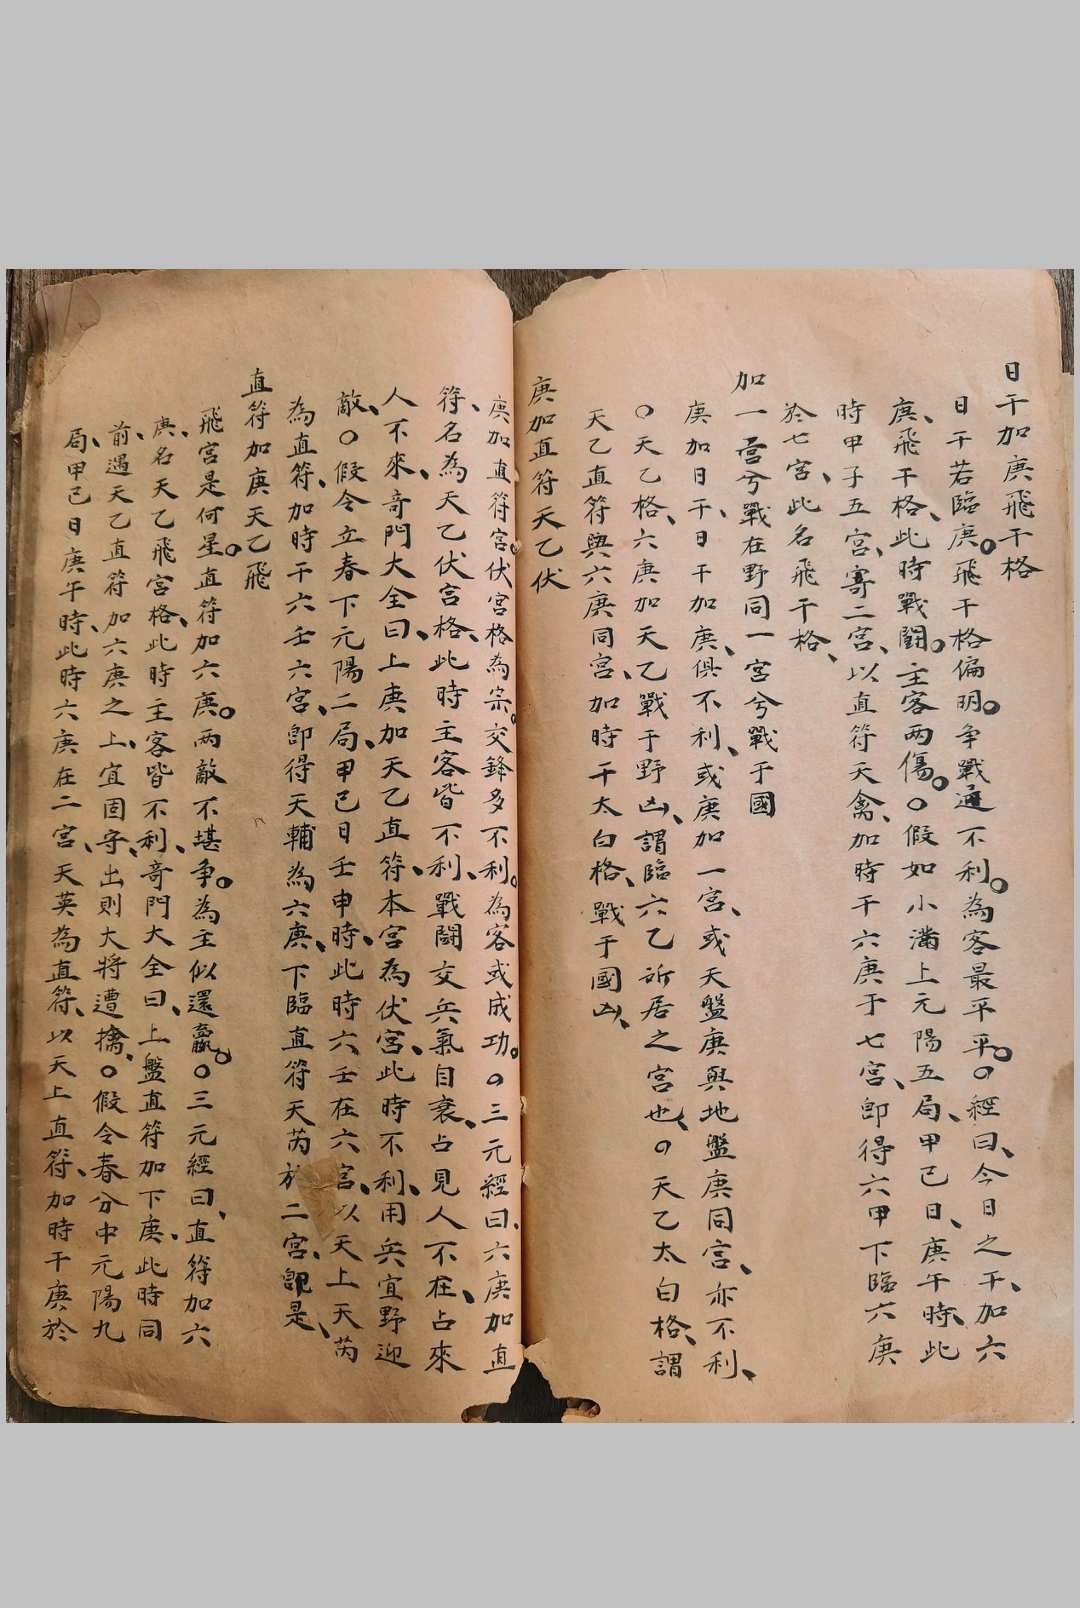 日干加庚飛干格
日干若臨庚。飛干格偏明。爭戰通不利。為客最平平。○經曰、今日之干、加六
庚、飛干格、此時戰鬪。主客兩傷。○假如小滿上元陽五局、甲己日、庚午時、此
時甲子五宮、寄二宮、以直符天禽、加時干六庚于七宮、即得六甲下臨六庚
於七宮、此名飛干格、
加一宮兮戰在野同一宮兮戰于國
庚加日干、日干加庚、俱不利、或庚加一宮、或天盤庚與地盤庚同宮、亦不利、
○天乙格、六庚加天乙戰于野凶、謂臨六乙所居之宮也、○天乙太白格、謂
天乙直符與六庚同宮、加時干太白格、戰于國凶、
庚加直符天乙伏
庚加直符宮。伏宮格為宗。交鋒多不利。為客或成功。○三元經曰、六庚加直
符、名為天乙伏宮格、此時主客皆不利、戰鬪交兵氣自衰、占見人不在、占來
人不來、奇門大全曰、上庚加天乙直符、本宮為伏宮、此時不利、用兵宜野迎
敵、○假令立春下元陽二局、甲己日壬申時、此時六壬在六宮、以天上天芮
為直符、加時干六壬六宮、即得天輔為六庚、下臨直符天芮於二宮、即是、
直符加庚天乙飛
飛宮是何星。直符加六庚。兩敵不堪爭。為主似還贏。○三元經曰、直符加六
庚、名天乙飛宮格、此時主客皆不利、奇門大全曰、上盤直符加下庚、此時同
前、遇天乙直符加六庚之上、宜固守、出則大將遭擒、○假令春分中元陽九
局、甲己日庚午時、此時六庚在二宮、天英為直符、以天上直符、加時干庚於